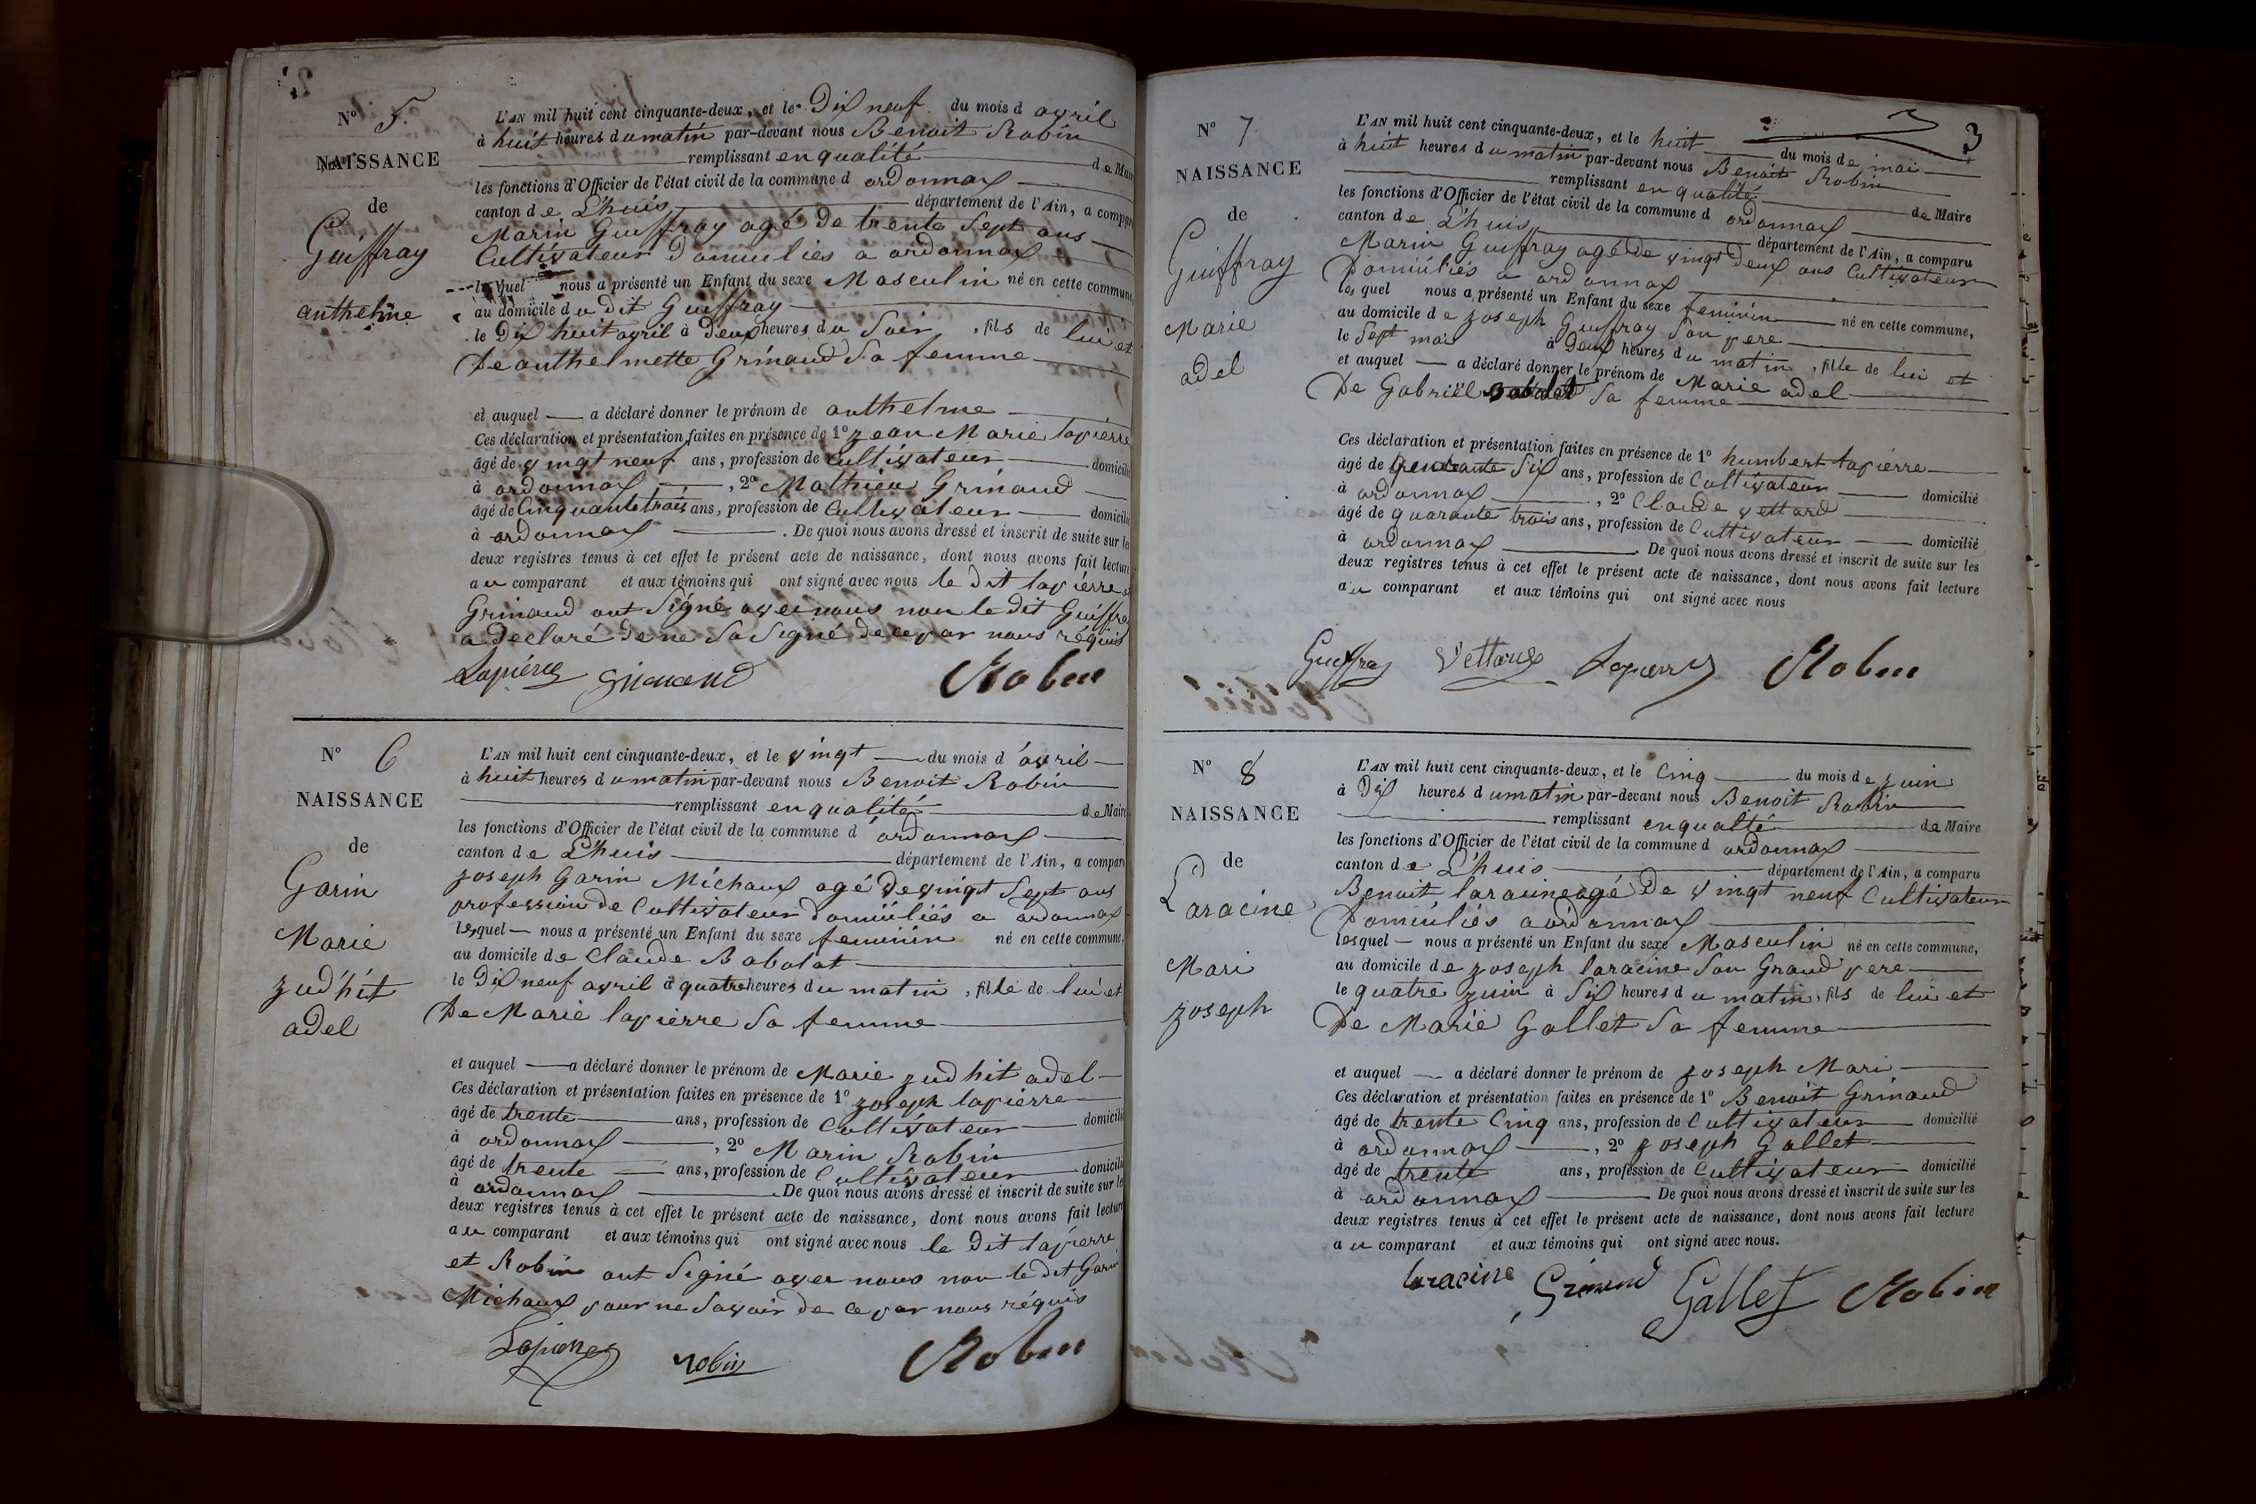 N° 5.
NAISSANCE
de
Guiffray
anthelme
L'AN mil huit cent cinquante-deux, et le Dix neuf du mois d avril
à huit heures du matin par-devant nous Benoit Robin
remplissant en qualité de Maire
les fonctions d'Officier de l'état civil de la commune d ordonnax
canton de L'huis département de l'Ain, a compar
Marin Guiffray agé de trente Sept ans
Cultivateur Domiciliés a ordonnax
lequel nous a présenté un Enfant du sexe Masculin né en cette commune,
au domicile du dit Guiffray
le Dix huit avril à deux heures du Soir, fils de lui et
De anthelmette Grinaud Sa femme
et auquel a déclaré donner le prénom de anthelme
Ces déclaration et présentation faites en présence de 1° Jean Marie lapierre
âgé de vingt neuf ans, profession de Cultivateur domicilié
à ordonnax, 2° Mathieu Grinaud
âgé de Cinquante trois ans, profession de Cultivateur domicilié
à ordonnax. De quoi nous avons dressé et inscrit de suite sur les
deux registres tenus à cet effet le présent acte de naissance, dont nous avons fait lecture
au comparant et aux témoins qui ont signé avec nous le Dit lapierre et
Grinaud ont Signé avec nous non le dit Guiffray
a declaré de ne Sa Signé de ce par nous réquis
Lapierre Grinaud Robin
N° 6
NAISSANCE
de
Garin
Marie
Judhit
adel
L'AN mil huit cent cinquante-deux, et le vingt du mois d avril
à huit heures du matin par-devant nous Benoit Robin
remplissant en qualité de Maire
les fonctions d'Officier de l'état civil de la commune d ordonnax
canton de L'huis département de l'Ain, a compar
Joseph Garin Michaux agé de vingt Sept ans
profession de Cultivateur domiciliés a ordonnax
lesquel nous a présenté un Enfant du sexe feminin né en cette commune,
au domicile de Claude Babolat
le Dix neuf avril à quatre heures du matin, fille de lui et
De Marie lapierre Sa femme
et auquel a déclaré donner le prénom de Marie Judhit adel
Ces déclaration et présentation faites en présence de 1° Joseph lapierre
âgé de trente ans, profession de Cultivateur domicilié
à ordonnax, 2° Marin Robin
âgé de trente ans, profession de Cultivateur domicilié
à ordonnax. De quoi nous avons dressé et inscrit de suite sur les
deux registres tenus à cet effet le présent acte de naissance, dont nous avons fait lecture
au comparant et aux témoins qui ont signé avec nous le Dit lapierre
et Robin ont Signé avec nous non le dit Garin
Michaux pour ne Savoir de ce par nous réquis
Lapierre robin Robin
3
N° 7
NAISSANCE
de
Guiffray
Marie
adel
L'AN mil huit cent cinquante-deux, et le huit du mois de mai
à huit heures du matin par-devant nous Benoit Robin
remplissant en qualité de Maire
les fonctions d'Officier de l'état civil de la commune d ordonnax
canton de L'huis département de l'Ain, a comparu
Marin Guiffray agé de vingt deux ans Cultivateur
Domiciliés a ordonnax
lesquel nous a présenté un Enfant du sexe feminin né en cette commune,
au domicile de Joseph Guiffray Son pere
le Sept mai à Deux heures du matin, fille de lui et
et auquel a déclaré donner le prénom de Marie adel
De Gabriël Babolat Sa femme
Ces déclaration et présentation faites en présence de 1° humbert lapierre
âgé de Six ans, profession de Cultivateur domicilié
à ordonnax, 2° Claude vettard
âgé de quarante trois ans, profession de Cultivateur domicilié
à ordonnax. De quoi nous avons dressé et inscrit de suite sur les
deux registres tenus à cet effet le présent acte de naissance, dont nous avons fait lecture
au comparant et aux témoins qui ont signé avec nous
Guiffray Vettard Lapierre Robin
N° 8
NAISSANCE
de
Laracine
Mari
Joseph
L'AN mil huit cent cinquante-deux, et le Cinq du mois de Juin
à Dix heures du matin par-devant nous Benoit Robin
remplissant en qualté de Maire
les fonctions d'Officier de l'état civil de la commune d ordonnax
canton de L'huis département de l'Ain, a comparu
Benoit laracine agé De vingt neuf Cultivateur
Domiciliés a ordonnax
lesquel nous a présenté un Enfant du sexe Masculin né en cette commune,
au domicile de Joseph laracine Son Grand pere
le quatre Juin à Six heures du matin, fils de lui et
De Marie Gallet Sa femme
et auquel a déclaré donner le prénom de Joseph Mari
Ces déclaration et présentation faites en présence de 1° Benoit Grinaud
âgé de trente Cinq ans, profession de Cultivateur domicilié
à ordonnax, 2° Joseph Gallet
âgé de trente ans, profession de Cultivateur domicilié
à ordonnax De quoi nous avons dressé et inscrit de suite sur les
deux registres tenus à cet effet le présent acte de naissance, dont nous avons fait lecture
au comparant et aux témoins qui ont signé avec nous.
laracine Grinaud Gallet Robin